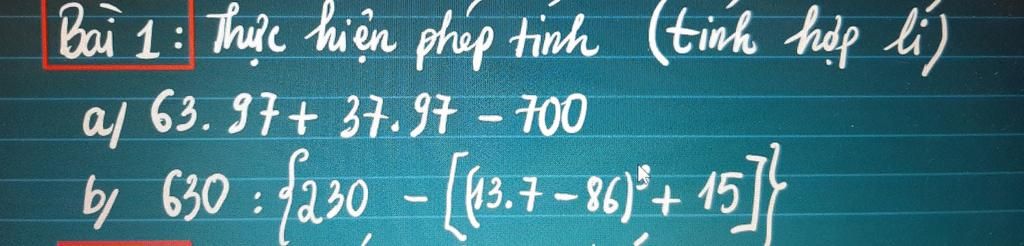 Bài 1: Thực hiện phép tính (tính hợp lí)
a/ 63.97 + 37.97 - 700
b/ 630 : {230 - [(13.7 - 86)³ + 15]}